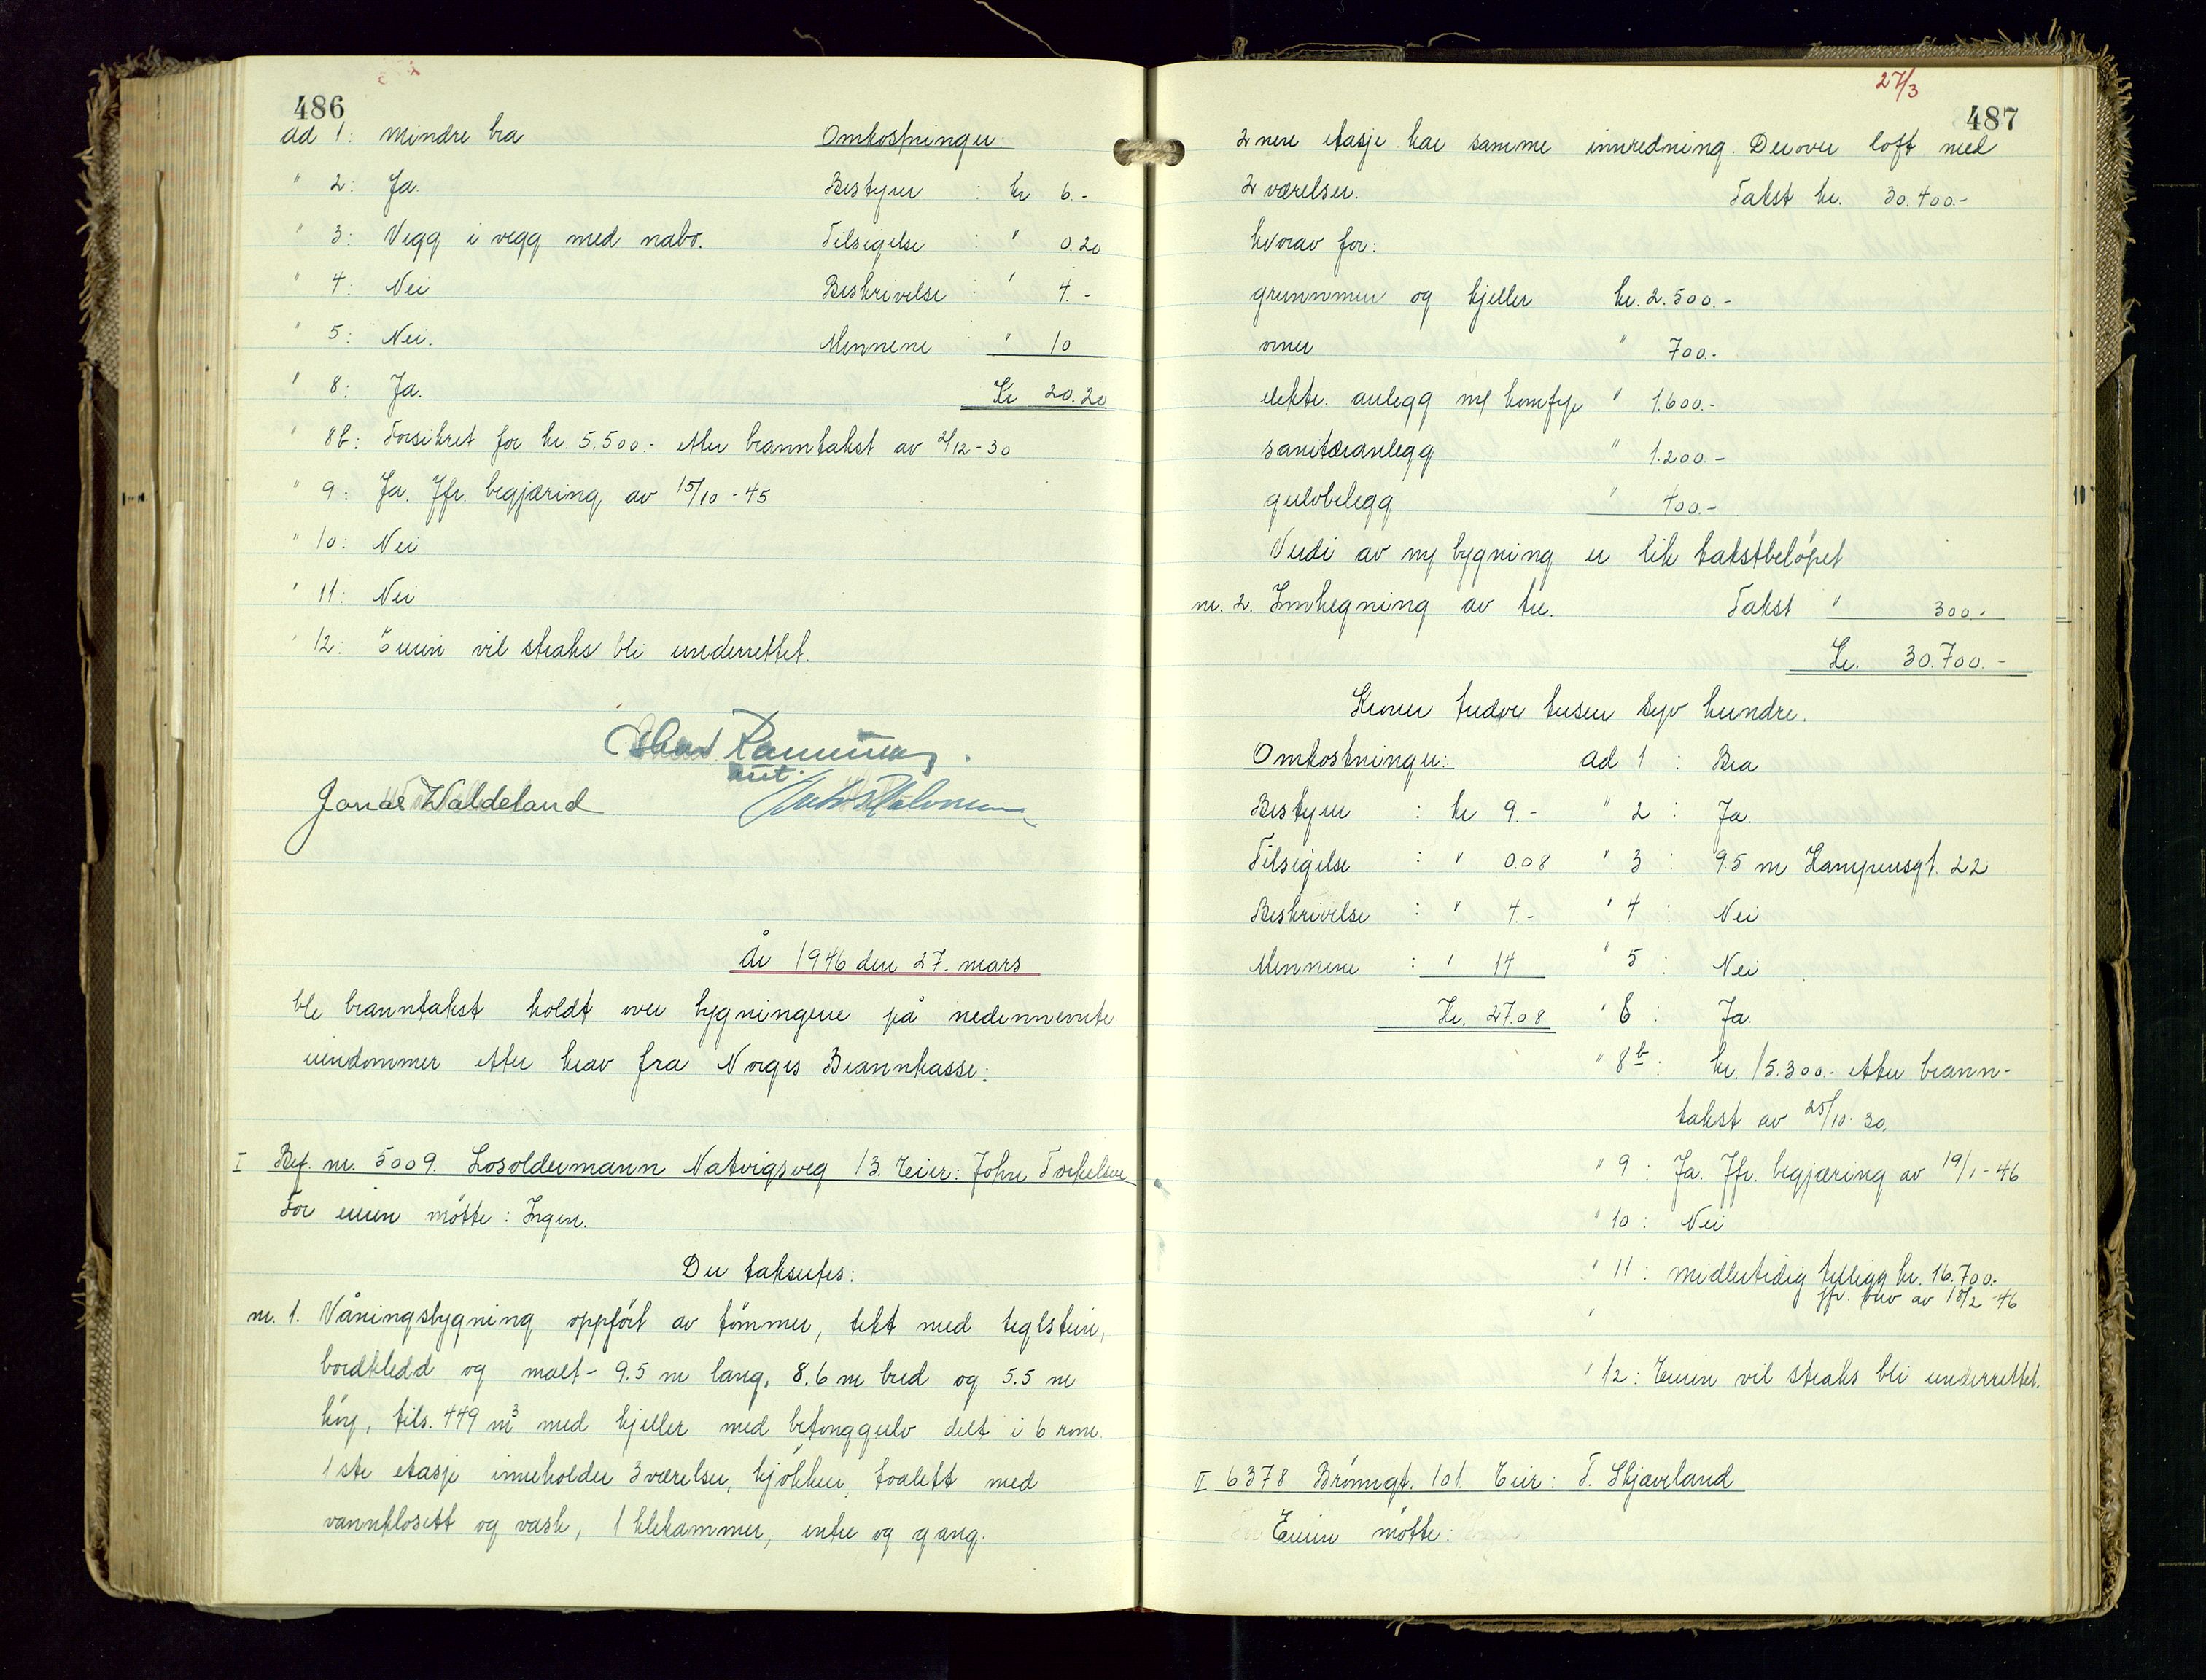 486
ad 1: Mindre bra Omkostninger:
" 2: Ja. Bestyrer : kr 6.-
" 3: Vegg i vegg med nabo. Tilsigelse : " 0.20
" 4: Nei Beskrivelse : " 4.-
" 5: Nei. Mennene " 10
" 8: Ja. Kr 20.20
" 8b: Forsikret for kr. 5.500.- etter branntakst av 2/12-30
" 9: Ja. Jfr. begjæring av 15/10-45
" 10: Nei
" 11: Nei
" 12: Eieren vil straks bli underrettet.
Jonas Waldeland
År 1946 den 27. mars
ble branntakst holdt over bygningene på nedennevnte
eiendommer etter krav fra Norges Brannkasse:
I Bef. nr. 5009. Losoldermann Natvigsveg 13. Eier: John Torkelsen
For eieren møtte: Ingen.
Der takseres:
nr. 1. Våningsbygning oppført av tømmer, tekt med teglstein,
bordkledd og malt - 9.5 m lang, 8.6 m bred og 5.5 m
høy, tils. 449 m³ med kjeller med betonggulv delt i 6 rom.
1ste etasje inneholder 3 værelser, kjøkken, toalett med
vannklosett og vask, 1 klekammer, entre og gang.
27/3
487
2nen etasje har samme innredning. Derover loft med
2 værelser. Takst kr. 30.400.-
hvorav for:
grunnmur og kjeller kr. 2.500.-
ovner " 700.-
elektr. anlegg m/ komfyr " 1.600.-
sanitæranlegg " 1.200.-
gulvbelegg " 400.-
Verdi av ny bygning er lik takstbeløpet
nr. 2. Innhegning av tre. Takst " 300.-
Kr. 30.700.-
Kroner tredve tusen syv hundre.
Omkostninger: ad 1 : Bra
Bestyrer : kr 9.- " 2 : Ja.
Tilsigelse : " 0.08 " 3 : 9.5 m Kampensgt. 22
Beskrivelse : " 4.- " 4 : Nei
Mennene : " 14 " 5 : Nei
Kr. 27.08 " 8 : Ja.
" 8b : kr. 15.300.- etter brann-
takst av 25/10-30.
" 9 : Ja. Jfr. begjæring av 19/1-46
" 10 : Nei
" 11 : midlertidig tillegg kr. 16.700.-
jfr. brev av 18/2-46
"
" 12 : Eieren vil straks bli underrettet.
II 6378 Brønngt. 101. Eier: T. Skjæveland
Eieren møtte: